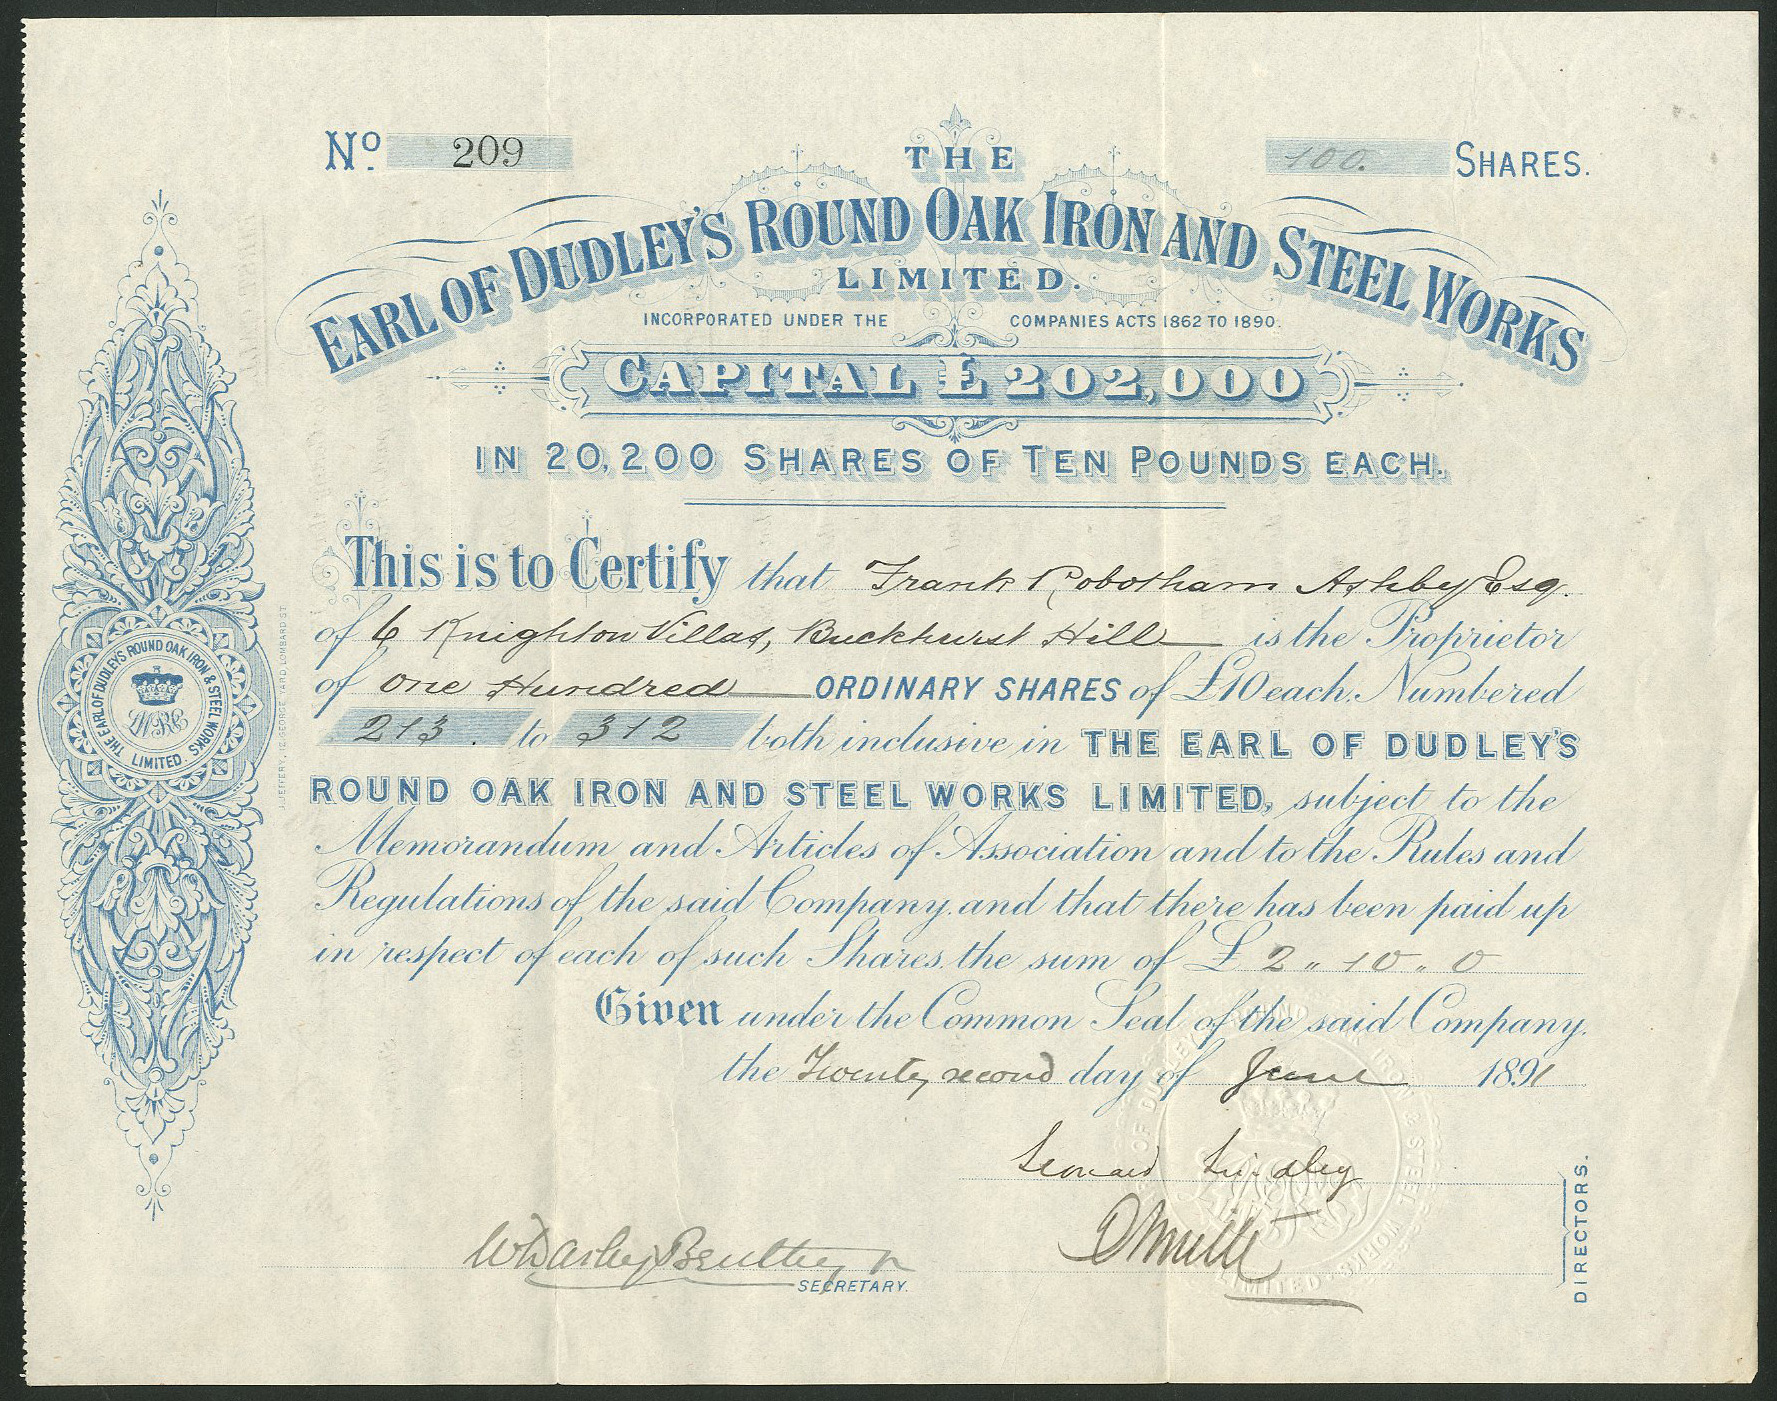 No. 209
100. SHARES.
THE
EARL OF DUDLEY'S ROUND OAK IRON AND STEEL WORKS
LIMITED.
INCORPORATED UNDER THE COMPANIES ACTS 1862 TO 1890.
CAPITAL £202,000
IN 20,200 SHARES OF TEN POUNDS EACH.
This is to Certify that Frank Robotham Ashby Esq.
of 6 Knighton Villas, Buckhurst Hill is the Proprietor
of One Hundred ORDINARY SHARES of £10 each. Numbered
213. to 312 both inclusive in THE EARL OF DUDLEY'S
ROUND OAK IRON AND STEEL WORKS LIMITED, subject to the
Memorandum and Articles of Association and to the Rules and
Regulations of the said Company, and that there has been paid up
in respect of each of such Shares, the sum of £ 2 " 10 " 0
Given under the Common Seal of the said Company,
the Twenty second day of June 1891
Leonard Lindley
SECRETARY.
DIRECTORS.
THE EARL OF DUDLEY'S ROUND OAK IRON & STEEL WORKS
LIMITED.